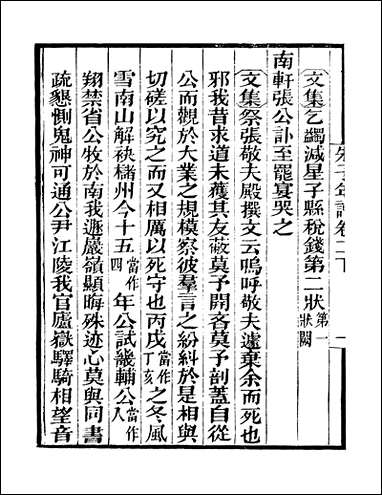 朱子年譜卷二下 一
文集乞蠲減星子縣稅錢第二狀第一狀闕
南軒張公訃至罷宴哭之
文集祭張敬夫殿撰文云嗚呼敬夫遽棄余而死也
邪我昔求道未獲其友蔽莫予開吝莫予剖蓋自從
公而觀於大業之規模察彼羣言之紛糾於是相與
切磋以究之而又相厲以死守也丙戌當作丁亥之冬風
雪南山解袂櫧州今十五當作四年公試畿輔公當作入
翔禁省公牧於南我遯巖嶺顯晦殊迹心莫與同書
疏懇惻鬼神可通公尹江陵我官廬嶽驛騎相望音